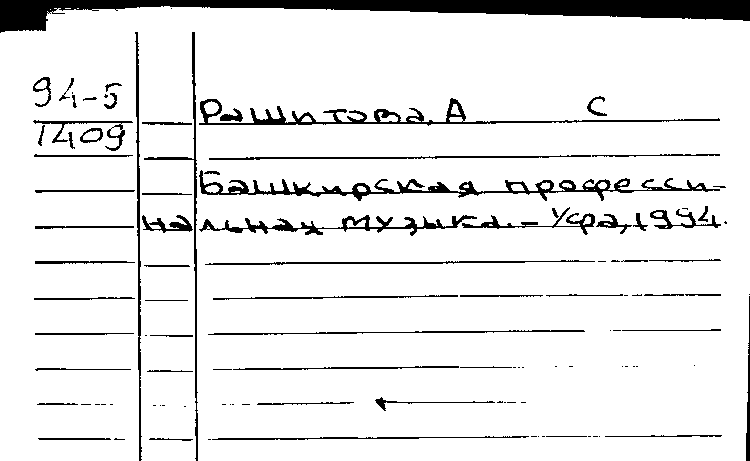 94-5
1409
Рашитова, А С
Башкирская професси-
нальная музыка. – Уфа, 1994.